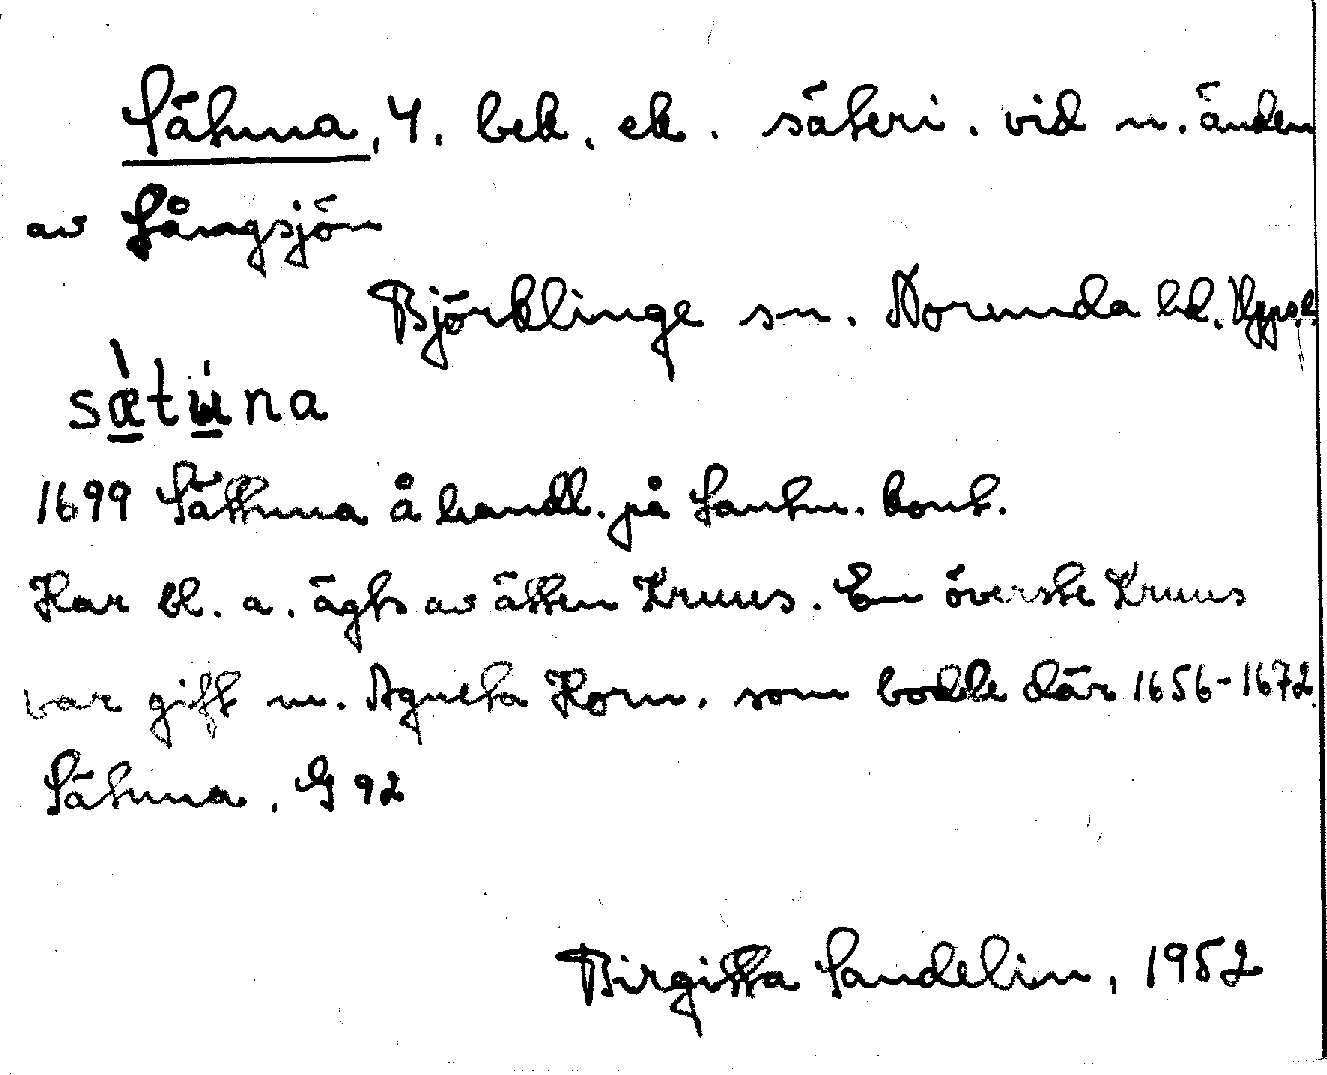 Sätuna, 4. bek. ek. säteri. vid n. änden
av Långsjön
Björklinge sn. Norunda hd. Uppsl.
sætuna
1699 Sättuna å handl. på Lantm. kont.
Har bl. a. ägts av ätten Kruus. En överste Kruus
var gift m. Agneta Horn. som bodde där 1656-1672.
Sätuna. G 92
Birgitta Sandelin, 1952